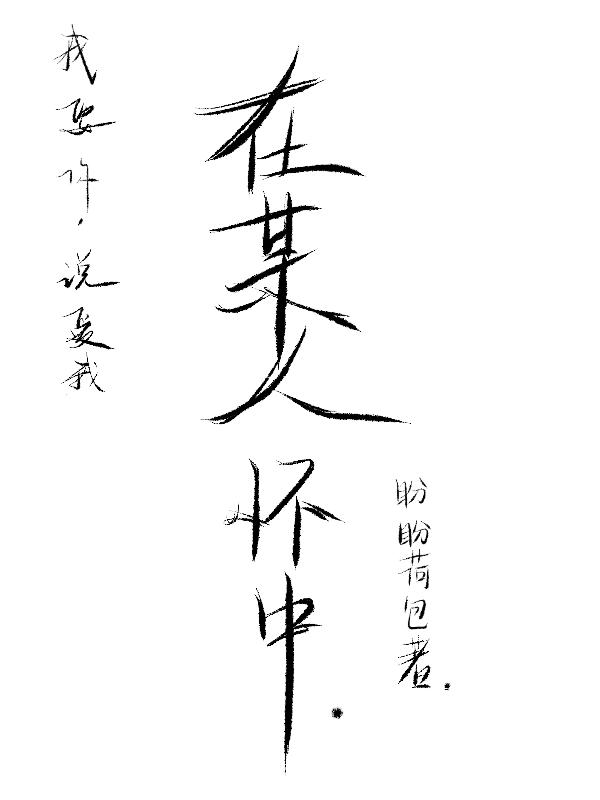 我要你,说爱我
在某人怀中.
盼盼荷包著.